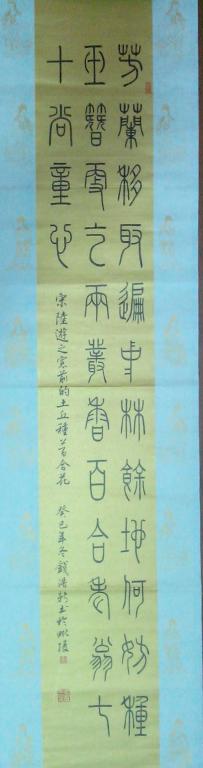 芳蘭移取遍中林餘地何妨種
玉簪更乞兩叢香百合老翁七
十尚童心
宋陸游之窗前的土丘種上百合花 癸巳年冬錢濤新書於毗陵